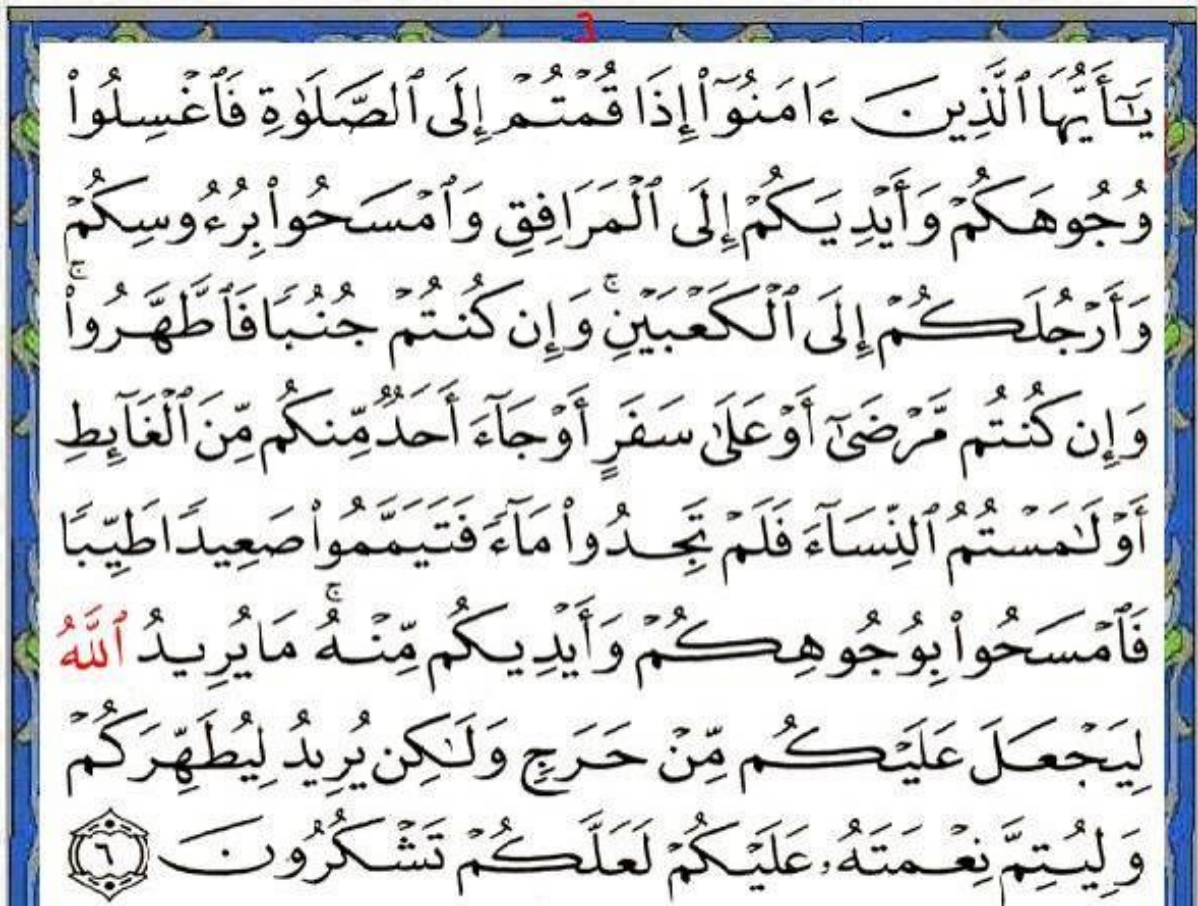 ٦
يَـٰٓأَيُّهَا ٱلَّذِينَ ءَامَنُوٓا۟ إِذَا قُمْتُمْ إِلَى ٱلصَّلَوٰةِ فَٱغْسِلُوا۟
وُجُوهَكُمْ وَأَيْدِيَكُمْ إِلَى ٱلْمَرَافِقِ وَٱمْسَحُوا۟ بِرُءُوسِكُمْ
وَأَرْجُلَكُمْ إِلَى ٱلْكَعْبَيْنِ ۚ وَإِن كُنتُمْ جُنُبًا فَٱطَّهَّرُوا۟ ۚ
وَإِن كُنتُم مَّرْضَىٰٓ أَوْ عَلَىٰ سَفَرٍ أَوْ جَآءَ أَحَدٌ مِّنكُم مِّنَ ٱلْغَآئِطِ
أَوْ لَـٰمَسْتُمُ ٱلنِّسَآءَ فَلَمْ تَجِدُوا۟ مَآءً فَتَيَمَّمُوا۟ صَعِيدًا طَيِّبًا
فَٱمْسَحُوا۟ بِوُجُوهِكُمْ وَأَيْدِيكُم مِّنْهُ ۚ مَا يُرِيدُ ٱللَّهُ
لِيَجْعَلَ عَلَيْكُم مِّنْ حَرَجٍ وَلَـٰكِن يُرِيدُ لِيُطَهِّرَكُمْ
وَلِيُتِمَّ نِعْمَتَهُۥ عَلَيْكُمْ لَعَلَّكُمْ تَشْكُرُونَ ٦